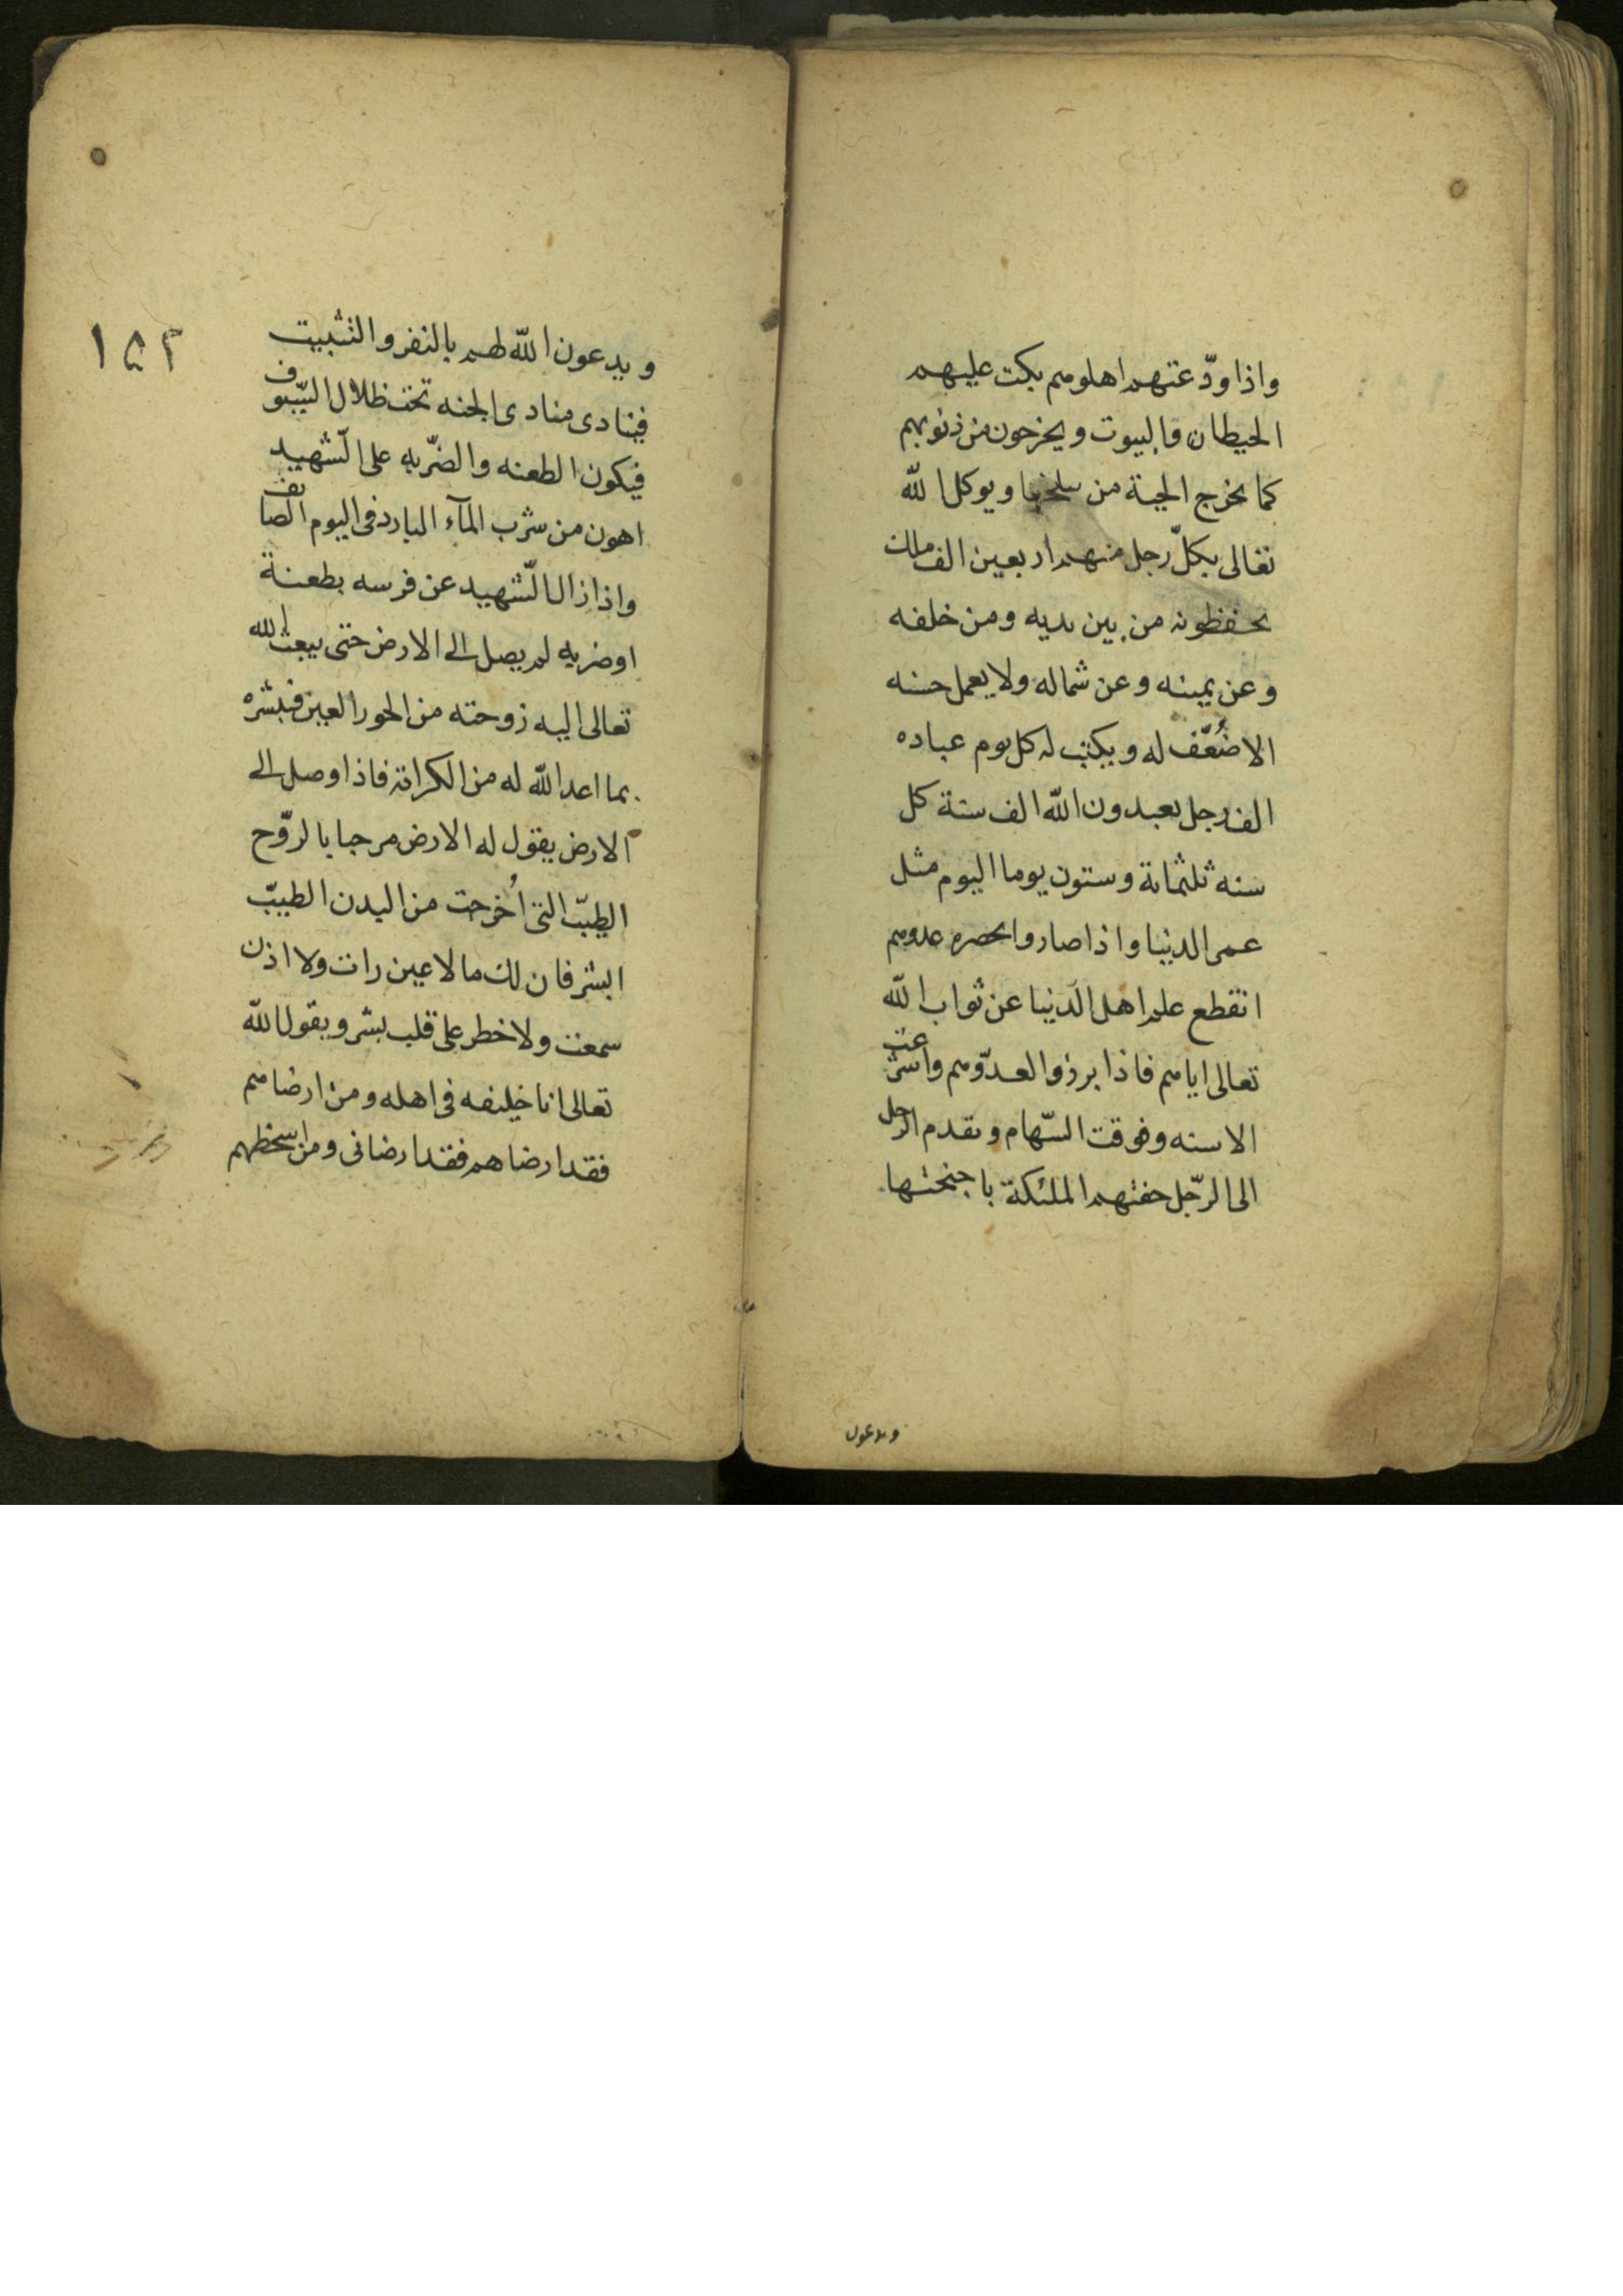 واذا ودّعتهم اهلوهم بكت عليهم
الحيطان والبيوت ويخرجون من ذنوبهم
كما يخرج الحية من سلخها ويوكل الله
تعالى بكلّ رجل منهم اربعين الف ملك
يحفظونه من بين يديه ومن خلفه
وعن يمينه وعن شماله ولا يعمل حسنه
الا ضُعّف له ويكتب له كل يوم عباده
الف رجل يعبدون الله الف سنة كل
سنه ثلثمائة وستون يوما اليوم مثل
عمر الدنيا واذا صاروا بحضره عدوهم
انقطع علم اهل الدنيا عن ثواب الله
تعالى اياهم فاذا برزوا لعدّوهم واشرعت
الاسنه وفوقت السّهام وتقدم الرجل
الى الرّجل حفتهم الملئكة باجنحتها
ويدعون
١٥٢
ويدعون الله لهم بالنصر والتثبيت
فينادى منادى الجنه تحت ظلال السّيوف
فيكون الطعنه والضّربه على الشّهيد
اهون من شرب المآء البارد فى اليوم الصائف
واذا زال الشّهيد عن فرسه بطعنة
او ضربه لم يصل الى الارض حتى يبعث الله
تعالى اليه زوجته من الحور العين فتبشره
بما اعد الله له من الكرامة فاذا وصل الى
الارض يقول له الارض مرحبا بالرّوح
الطيّب التى اُخرجت من البدن الطيبّ
ابشر فان لك ما لا عين رات ولا اذن
سمعت ولا خطر على قلب بشر ويقول الله
تعالى انا خليفه فى اهله ومن ارضاهم
فقد ارضاهم فقد ارضانى ومن اسخطهم